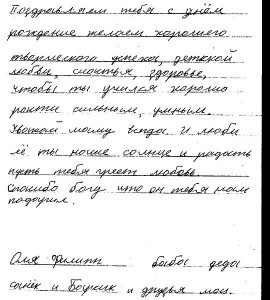 Поздравляем тебя с днём
рождение желаем хорошего
творческого успеха, детской
любви, счастья, здоровье,
чтобы ты учился хорошо
расти сильным, умным.
Уважай маму всегда. И люби
её ты наше солнце и радость
пусть тебя греет любовь.
Спасибо богу что он тебя нам
подарил.
Оля Филипп бабы деды
сынек и и друзья мои.